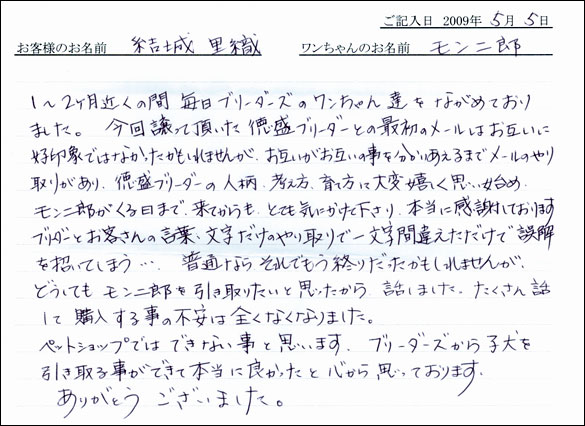 ご記入日 2009年 5月 5日
お客様のお名前 結城 里織 ワンちゃんのお名前 モン二郎
1〜2ヶ月近くの間 毎日ブリーダーズのワンちゃん達をながめており
ました。今回譲って頂いた徳盛ブリーダーとの最初のメールはお互いに
好印象ではなかったかもしれませんが、お互いがお互いの事を分かりあえるまでメールのやり
取りがあり、徳盛ブリーダーの人柄、考え方、育て方に大変嬉しく思い始め、
モン二郎がくる日まで、来てからも、とても気にかけて下さり、本当に感謝しております
ブリーダーとお客さんの言葉、文字だけのやり取りで一文字間違えただけで誤解
を招いてしまう…、普通ならそれでもう終りだったかもしれませんが、
どうしてもモン二郎を引き取りたいと思ったから、話しました。たくさん話
して購入する事の不安は全くなくなりました。
ペットショップではできない事と思います、ブリーダーズから子犬を
引き取る事ができて本当に良かったと心から思っております。
ありがとうございました。